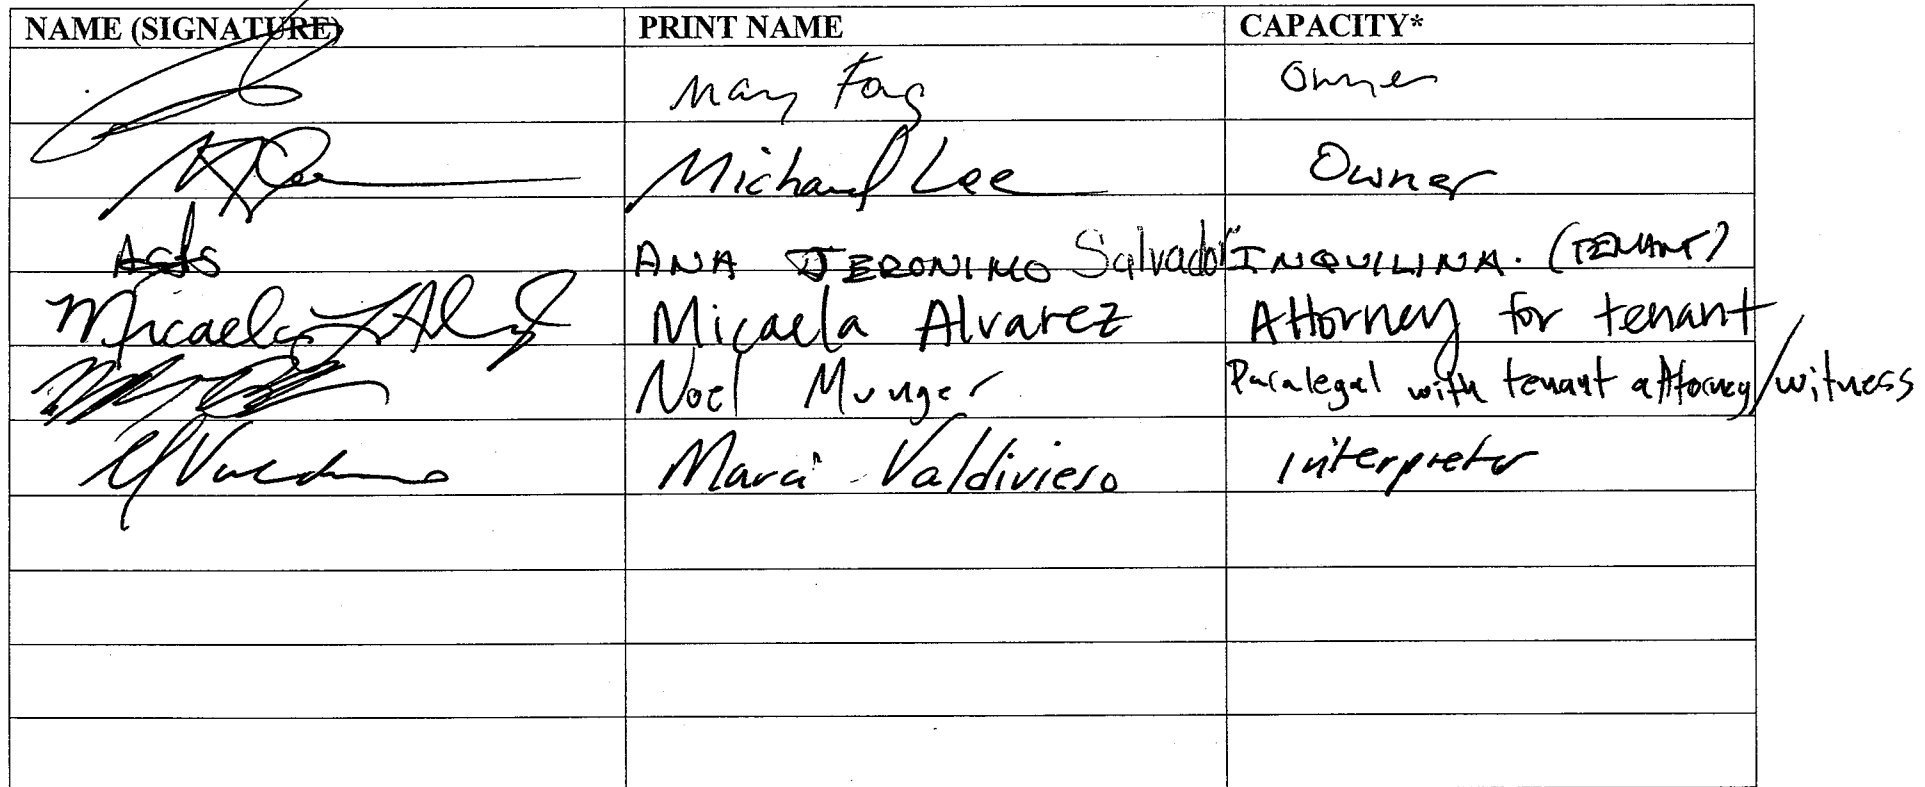 NAME (SIGNATURE) PRINT NAME CAPACITY*
Mary Fong Owner
Michael Lee Owner
ANA JERONIMO Salvador INQUILINA. (TENANT)
Micaela Alvarez Micaela Alvarez Attorney for tenant
Noel Munger Paralegal with tenant attorney/witness
Valdivieso interpreter